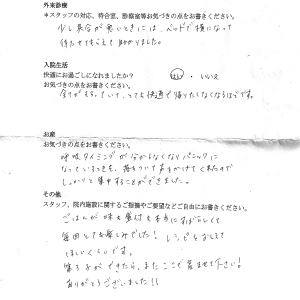 外来診療
*スタッフの対応、待合室、診察室等お気づきの点をお書きください。
少し具合が悪いときには、ベッドで横になって
待たせてもらえて助かりました。
入院生活
快適にお過ごしになれましたか?
はい ・ いいえ
お気づきの点をお書きください。
全てがそろっていて、とても快適で帰りたくなくなるほどです。
お産
お気づきの点をお書きください。
呼吸タイミングが分からなくなりパニックに
なっているときも、落ちついて声をかけてくれたので
しっかりと集中することができました。
その他
スタッフ、院内施設に関するご指摘やご要望などご自由にお書きください。
ごはんが味も量も本当にすばらしくて
毎回とても楽しみでした! レシピをおしえて
ほしいくらいです。
第3子ができたら、またここで産ませて下さい!
ありがとうございました!!